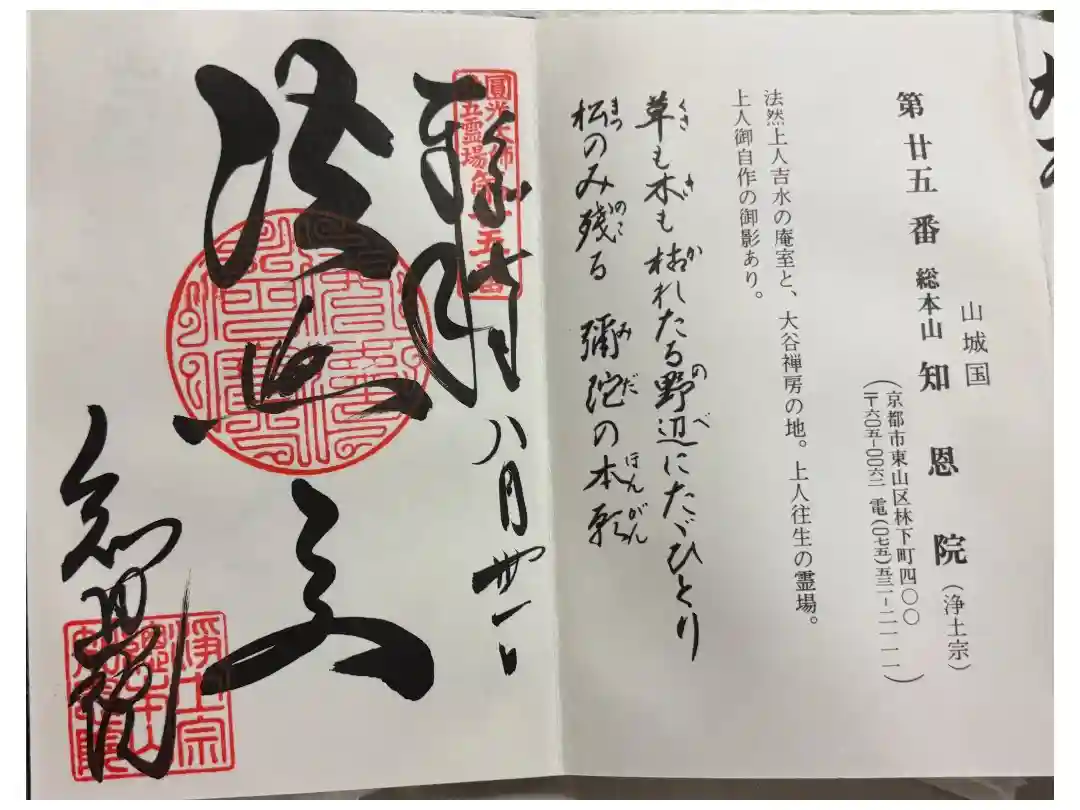 山城国
第廿五番 総本山 知恩院(浄土宗)
(京都市東山区林下町四〇〇
〒六〇五-〇〇六二 電(〇七五)五三一-二一一一)
法然上人吉水の庵室と、大谷禅房の地。上人往生の霊場。
上人御自作の御影あり。
草も木も枯れたる野辺にたゞひとり
くさ き かれ の べ
松のみ残る 彌陀の本願
まつ のこ み だ ほんがん
圓光大師
廿五霊場第廿五番
八月卅一日
法然
知恩院
浄土宗
總本山
知恩院